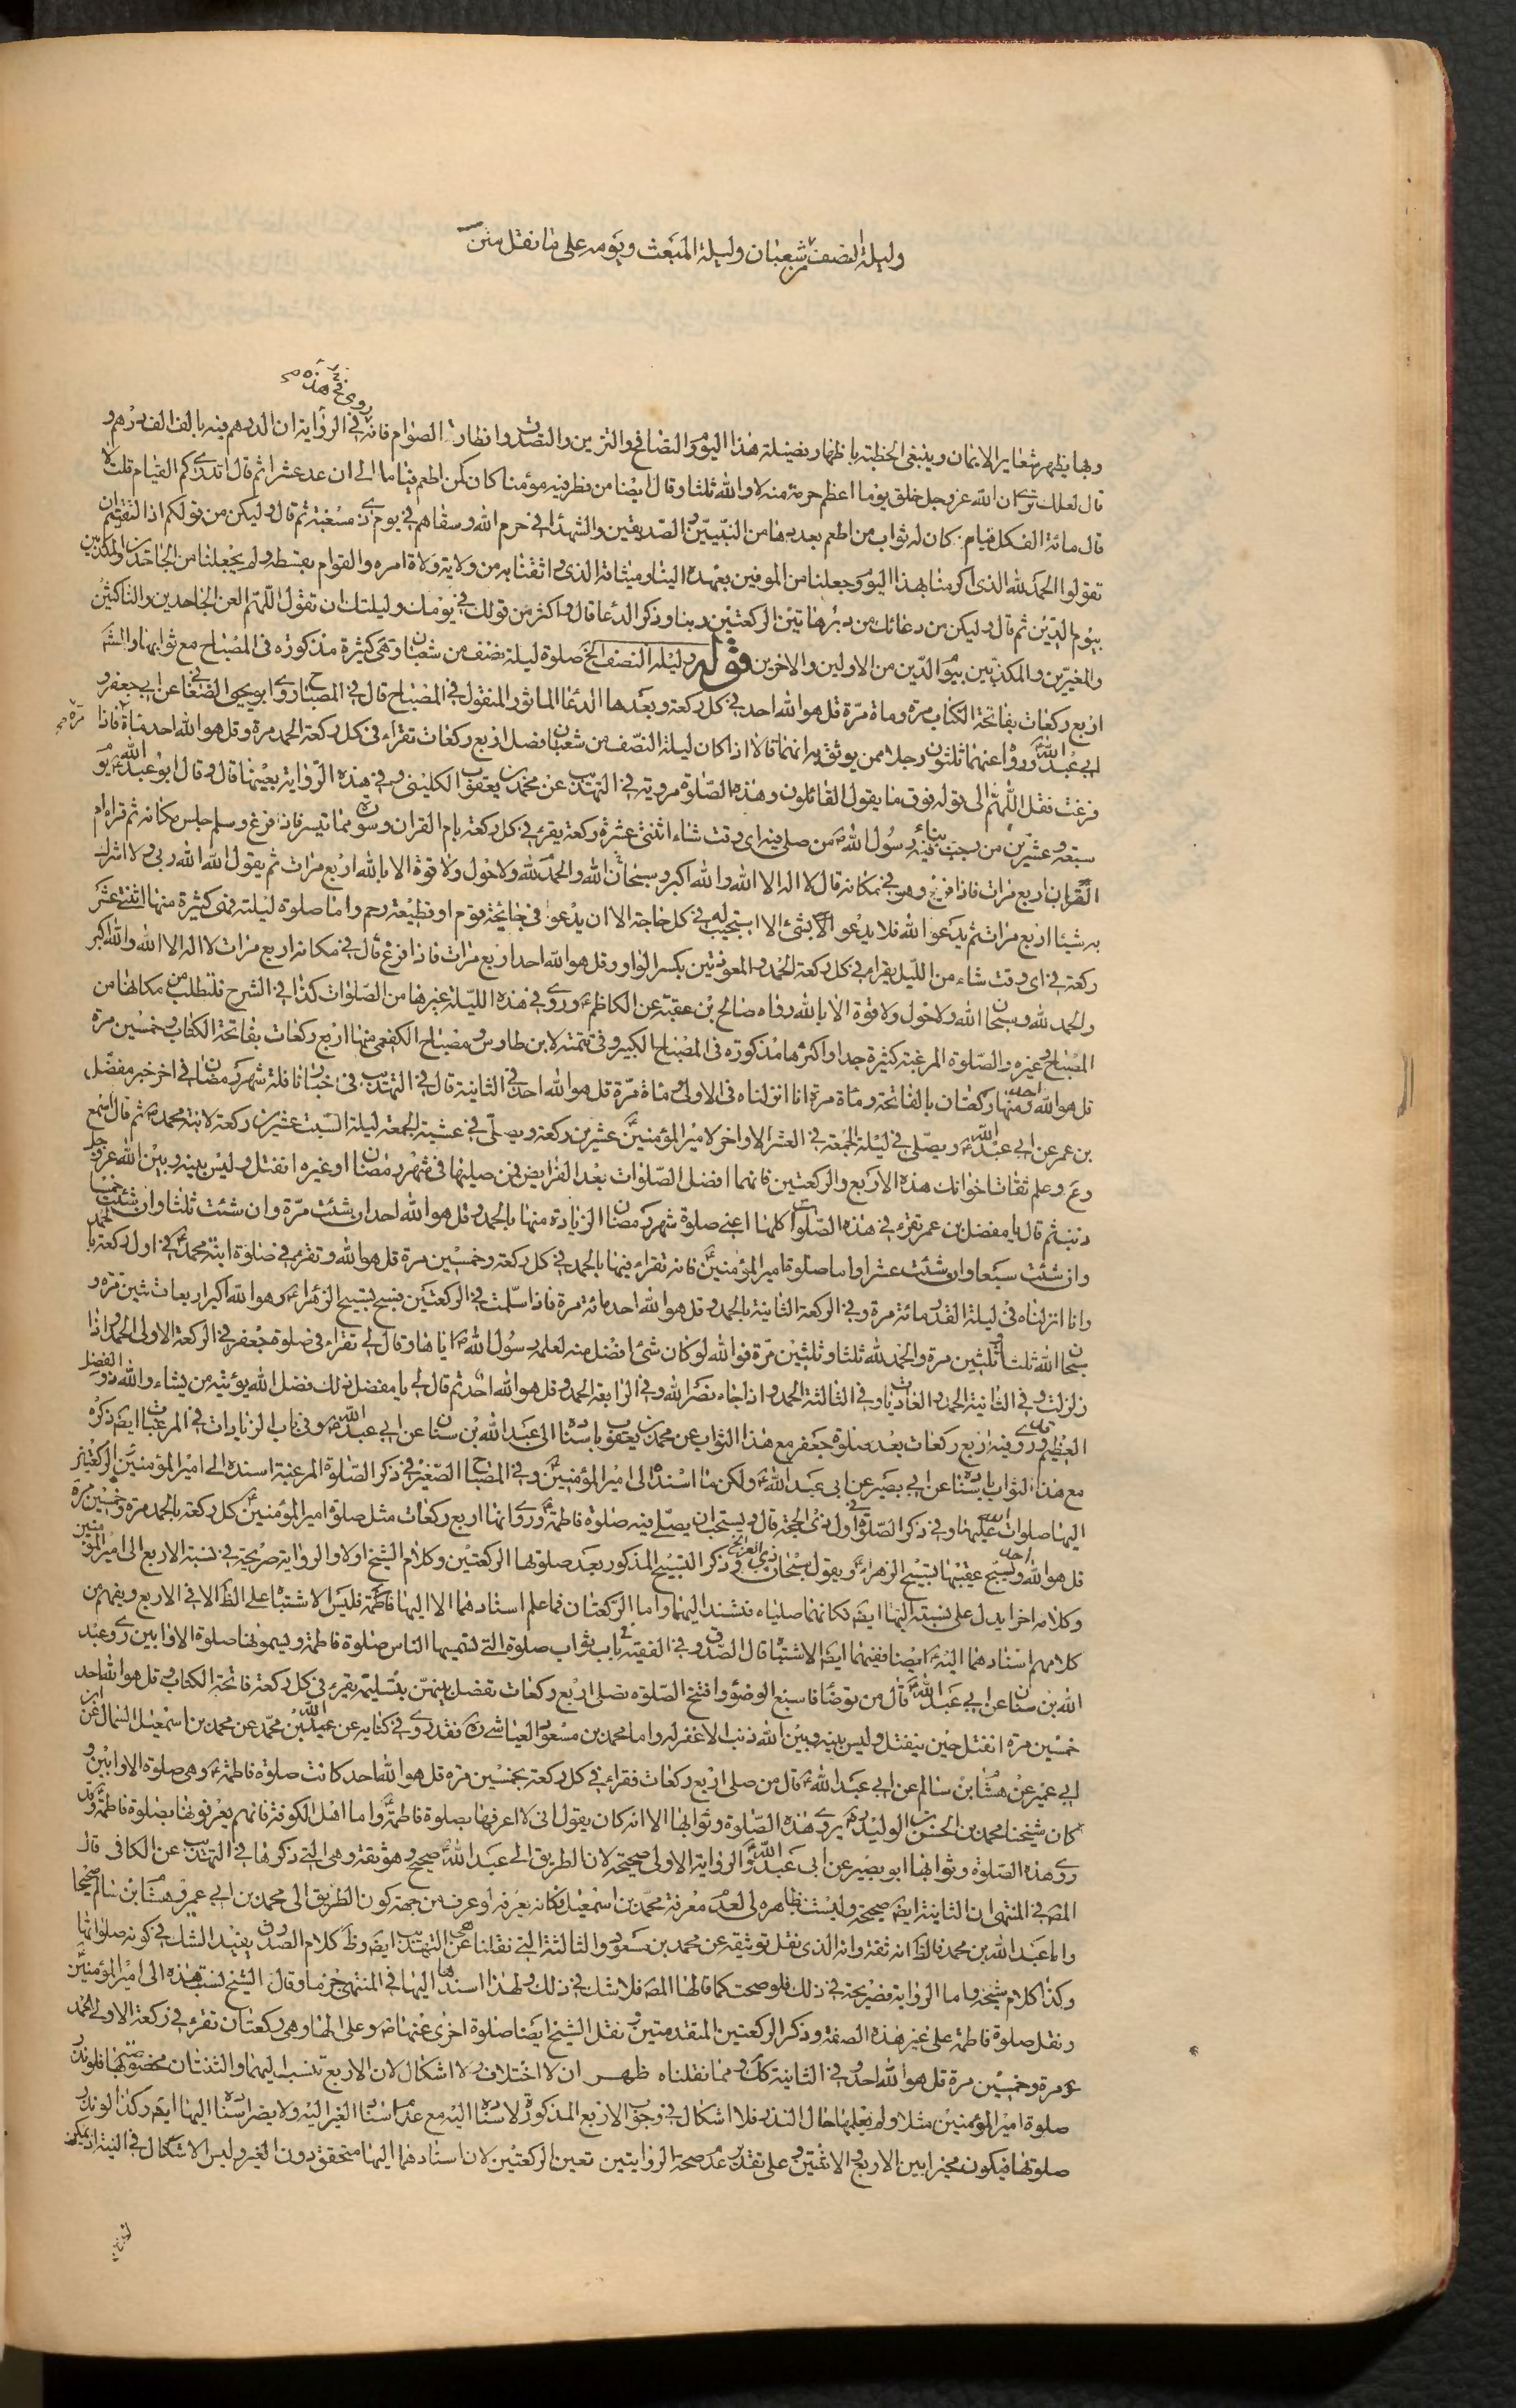 وليلة النصف من شعبان وليلة المبعث ويومه على ما نقل متن
روى في هذه صح
وبها يظهر شعاير الايمان وينبغي الخطبة باظهار فضيلة هذا اليوم والتصافح والتزين والتصدق وافطار الصوام فانه في الرواية ان الدرهم فيه بالف الف درهم و
قال لعلك ترى ان الله عز وجل خلق يوما اعظم حرمة منه لا والله ثلثا وقال ايضا من فطر فيه مؤمنا كان كمن اطعم فياما الى ان عد عشرا ثم قال اتدرى كم الفيام قلت لا
قال مائة الف كل فيام كان له ثواب من اطعم بعددها من النبيين والصديقين والشهدا في حرم الله وسقاهم في يوم ذى مسغبة ثم قال وليكن من قولكم اذا التقيتم ان
تقولوا الحمد لله الذى اكرمنا بهذا اليوم وجعلنا من الموفين بعهده الينا وميثاقه الذى واثقنا به من ولاية ولاة امره والقوام بقسطه ولم يجعلنا من الجاحدين والمكذبين
بيوم الدين ثم قال وليكن من دعائك من دبر هاتين الركعتين ربنا وذكر الدعا قال واكثر من قولك في يومك وليلتك ان تقول اللهم العن الجاحدين والناكثين
والمغيرين والمكذبين بيوم الدين من الاولين والاخرين قوله وليلة النصف الخ صلوة ليلة نصف من شعبان وهى كثيرة مذكورة في المصباح مع ثوابها
اربع ركعات بفاتحة الكتاب مرة وماة مرة قل هو الله احد في كل ركعة وبعدها الدعا الماثور المنقول في المصباح قال في المصباح روى ابو يحيى الصنعاني عن ابي جعفر و
ابي عبد الله ورواه عنهما ثلثون رجلا ممن يوثق به انهما قالا اذا كان ليلة النصف من شعبان فصل اربع ركعات تقراء في كل ركعة الحمد مرة وقل هو الله احد ماة مرة صح فاذا
فرغت فقل اللهم الى قوله فوق ما يقول القائلون وهذه الصلوة مروية في التهذيب عن محمد بن يعقوب الكليني وفي هذه الرواية بعينها قال وقال ابو عبد الله يوم
سبعة وعشرين من رجب نبئ فيه رسول الله ص من صلى فيه اى وقت شاء اثنتى عشرة ركعة يقرء في كل ركعة بام القران وسورة مما تيسر فاذا فرغ وسلم جلس مكانه ثم قراء ام
القران اربع مرات فاذا فرغ وهو في مكانه قال لا اله الا الله والله اكبر وسبحان الله والحمد لله ولا حول ولا قوة الا بالله اربع مرات ثم يقول الله الله ربي ولا اشرك
به شيئا اربع مرات ثم يدعو الله فلا يدعو الا بشئ الا استجيب له في كل حاجة الا ان يدعو في جايحة قوم او قطيعة رحم واما صلوة ليلته فهى كثيرة منها اثنتى عشر
ركعة في اى وقت شاء من الليل يقراء في كل ركعة الحمد والمعوذتين بكسر الواو وقل هو الله احد اربع مرات فاذا فرغ قال في مكانه اربع مرات لا اله الا الله والله اكبر
والحمد لله وسبحان الله ولا حول ولا قوة الا بالله رواه صالح بن عقبة عن الكاظم ع وروى في هذه الليلة غيرها من الصلوات كذا في الشرح فلتطلب من مكانها من
المصباح وغيره والصلوة المرغبة كثيرة جدا واكثرها مذكورة في المصباح الكبير وفي تتمته لابن طاوس ومصباح الكفعمي منها اربع ركعات بفاتحة الكتاب وخمسين مرة
قل هو الله احد ومنها ركعتان بالفاتحة ومأة مرة انا انزلناه في الاولى ومأة مرة قل هو الله احد في الثانية قال في التهذيب في اخبار نافلة شهر رمضان في اخر خبر مفضل
بن عمر عن ابي عبد الله ع ويصلي في ليلة الجمعة في العشر الاواخر لامير المؤمنين ع عشرين ركعة ويصلى في عشية الجمعة ليلة السبت عشرين ركعة لابنة محمد ص ثم قال اسمع
وع وعلم ثقات اخوانك هذه الاربع والركعتين فانهما افضل الصلوات بعد الفرايض فمن صليها في شهر رمضان او غيره انفتل وليس بينه وبين الله عز وجل
ذنب ثم قال يا مفضل بن عمر تقرء في هذه الصلوات كلها اعنى صلوة شهر رمضان الزيادة منها بالحمد وقل هو الله احد ان شئت مرة وان شئت ثلثا وان شئت خمسا
وان شئت سبعا وان شئت عشرا واما صلوة امير المؤمنين ع فانه تقراء فيها بالحمد في كل ركعة وخمسين مرة قل هو الله وتقرء في صلوة ابنة محمد ع في اول ركعة بالحمد
وانا انزلناه في ليلة القدر مائة مرة وفي الركعة الثانية بالحمد وقل هو الله احد مائة مرة فاذا سلمت في الركعتين فسبح تسبيح الزهراء ع وهو الله اكبر اربعا وثلثين مرة و
سبحان الله ثلثا وثلثين مرة والحمد لله ثلثا وثلثين مرة فوالله لو كان شئ افضل منه لعلمه رسول الله ص اياها وقال لى تقراء في صلوة جعفر في الركعة الاولى الحمد واذا
زلزلت وفي الثانية الحمد والعاديات وفي الثالثة الحمد واذا جاء نصر الله وفي الرابعة الحمد وقل هو الله احد ثم قال لى يا مفضل ذلك فضل الله يؤتيه من يشاء والله ذو الفضل
العظيم وقد روى فيه اربع ركعات بعد صلوة جعفر مع هذا الثواب عن محمد بن يعقوب باسناده الى عبد الله بن سنان عن ابي عبد الله ع وفي باب الزيادات في المرغبات ايضا ذكره
مع هذا الثواب باسناده عن ابي بصير عن ابى عبد الله ع ولكن ما اسنده الى امير المؤمنين ع وفي المصباح الصغير في ذكر الصلوة المرغبة اسنده الى امير المؤمنين ع والركعتين
اليها صلوات الله عليهما وفي ذكر الصلوة في اول ذى الحجة قال ويستحب ان يصلى فيه صلوة فاطمة ع وروى انها اربع ركعات مثل صلوة امير المؤمنين ع كل ركعة بالحمد مرة وخمسين مرة
قل هو الله احد ويسبح عقيبها تسبيح الزهراء ع ويقول سبحان ذي العز الخ وذكر التسبيح المذكور بعد صلوتها الركعتين وكلام الشيخ اولا والرواية صريحة في نسبة الاربع الى امير المؤمنين
وكلامه اخرا يدل على نسبته اليها ايضا فكانهما صلياه فتسند اليهما واما الركعتان فما علم اسنادهما الا اليها فاطمة ع فليس الاشتباه على الظ الا في الاربع ويفهم من
كلامهم اسنادهما اليه ع ايضا ففيهما ايضا الاشتباه قال الصدوق في الفقيه في باب ثواب صلوة التي تسميها الناس صلوة فاطمة ويسمونها صلوة الاوابين روى عبد
الله بن سنان عن ابي عبد الله ع قال من توضأ فاسبغ الوضوء وافتتح الصلوة فصلى اربع ركعات تفصل بينهن بتسليمة يقرء في كل ركعة فاتحة الكتاب وقل هو الله احد
خمسين مرة انفتل حين ينفتل وليس بينه وبين الله ذنب الا غفر له واما محمد بن مسعود العياشي ره فقد روى في كتابه عن عبد الله بن محمد عن محمد بن اسمعيل السمال عن ابن
ابي عمير عن هشام بن سالم عن ابي عبد الله ع قال من صلى اربع ركعات فقراء في كل ركعة بخمسين مرة قل هو الله احد كانت صلوة فاطمة ع وهى صلوة الاوابين و
كان شيخنا محمد بن الحسن بن الوليد ره يروى هذه الصلوة وثوابها الا انه كان يقول انى لا اعرفها بصلوة فاطمة ع واما اهل الكوفة فانهم يعرفونها بصلوة فاطمة ع وقد
روى هذه الصلوة وثوابها ابو بصير عن ابى عبد الله ع والرواية الاولى صحيحة لان الطريق الى عبد الله صحيح وهو ثقة وهى التى ذكرها في التهذيب عن الكافى قال
المص في المنتهى ان الثانية ايضا صحيحة وليست ظاهره لى لعدم معرفة محمد بن اسمعيل فكانه يعرفه او عرف من جهة كون الطريق الى محمد بن ابى عمير وهشام بن سالم صحيحا
واما عبد الله بن محمد فالظ انه ثقة وانه الذى نقل توثيقه عن محمد بن مسعود والثالثة التى نقلناها عن التهذيب ايضا وظ كلام الصدوق يفيد الشك في كونه صلواتها
وكذا كلام شيخه واما الرواية فصريحة في ذلك فلو صحت كما قالها المص فلا شك في ذلك ولهذا اسندها اليها في المنتهى جزما وقال الشيخ نسبت هذه الى امير المؤمنين ع
ونقل صلوة فاطمة على غير هذه الصفة وذكر الركعتين المتقدمتين ونقل الشيخ ايضا صلوة اخرى عنها ص وعلى الها وهى ركعتان تقرء في ركعة الاولى الحمد
مرة وخمسين مرة قل هو الله احد وفي الثانية كك ومما نقلناه ظهر ان لا اختلاف ولا اشكال لان الاربع تنسب اليهما والثنتان مخصوصتين بها فلو نذر
صلوة امير المؤمنين مثلا ولم يعلمها حال النذر فلا اشكال في وجوب الاربع المذكورة لاسناده اليه مع عدم اسناد الغير اليه ولا يضر اسناده اليها ايضا وكذا لو نذر
صلوتها فيكون مخيرا بين الاربع والاثنتين وعلى تقدير عدم صحة الروايتين تعين الركعتين لان اسنادهما اليها متحقق دون الغير وليس الاشكال في النية اذ يمكن